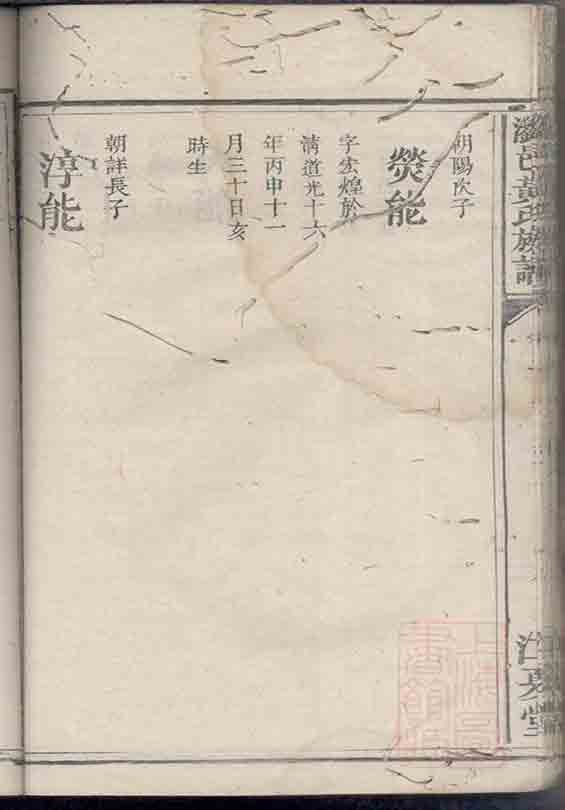 瀏邑黃氏族譜
江夏堂
朝陽次子
熒能
字宏煌於
清道光十六
年丙申十一
月三十日亥
時生
朝詳長子
淳能
上海圖
書館藏